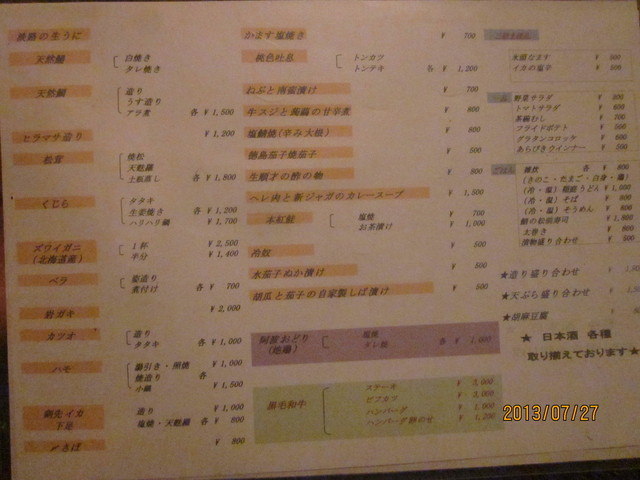 淡路の生うに
天然鰻 白焼き
タレ焼き
天然鯛 造り
うす造り
アラ煮 各 ¥ 1,500
ヒラマサ造り ¥ 1,200
松茸 焼松
天麩羅
土瓶蒸し 各 ¥ 1,800
くじら タタキ
生姜焼き 各 ¥ 1,200
ハリハリ鍋 ¥ 1,700
ズワイガニ 1杯 ¥ 2,500
(北海道産) 半分 ¥ 1,400
ベラ 姿造り
煮付け 各 ¥ 700
岩ガキ ¥ 2,000
カツオ 造り
タタキ 各 ¥ 1,000
ハモ 湯引き・照焼 ¥ 1,000
焼造り 各
小鍋 ¥ 1,500
剣先イカ 造り ¥ 1,000
下足 塩焼・天麩羅 各 ¥ 800
〆さば ¥ 800
かます塩焼き ¥ 700
桃色吐息 トンカツ
トンテキ 各 ¥ 1,200
ねぶと南蛮漬け ¥ 700
牛スジと蒟蒻の甘辛煮 ¥ 800
塩鯖焼(辛み大根) ¥ 800
徳島茄子焼茄子 ¥ 500
生順才の酢の物 ¥ 800
ヘレ肉と新ジャガのカレースープ ¥ 1,500
本紅鮭 塩焼 ¥ 700
お茶漬け ¥ 1,000
冷奴 ¥ 500
水茄子ぬか漬け ¥ 500
胡瓜と茄子の自家製しば漬け ¥ 500
阿波おどり 塩焼
(地鶏) タレ焼 各 ¥ 1,000
黒毛和牛 ステーキ ¥ 3,000
ビフカツ ¥ 3,000
ハンバーグ
ハンバーグ卵のせ
水雲なます
イカの塩辛 ¥ 500
野菜サラダ ¥ 800
トマトサラダ
茶碗むし ¥ 700
フライドポテト ¥ 500
グラタンコロッケ ¥ 600
あらびきウインナー ¥ 500
ごはん 雑炊 各 ¥ 800
(きのこ・たまご・白身・鶏)
(冷・温) 鍋焼うどん ¥ 1,000
(冷・温) そば ¥ 800
(冷・温) そうめん ¥ 800
鯖の松前寿司 ¥ 1,800
太巻き
漬物盛り合わせ ¥ 500
★造り盛り合わせ
★天ぷら盛り合わせ
★胡麻豆腐
★ 日本酒 各種
取り揃えております★
2013/07/27